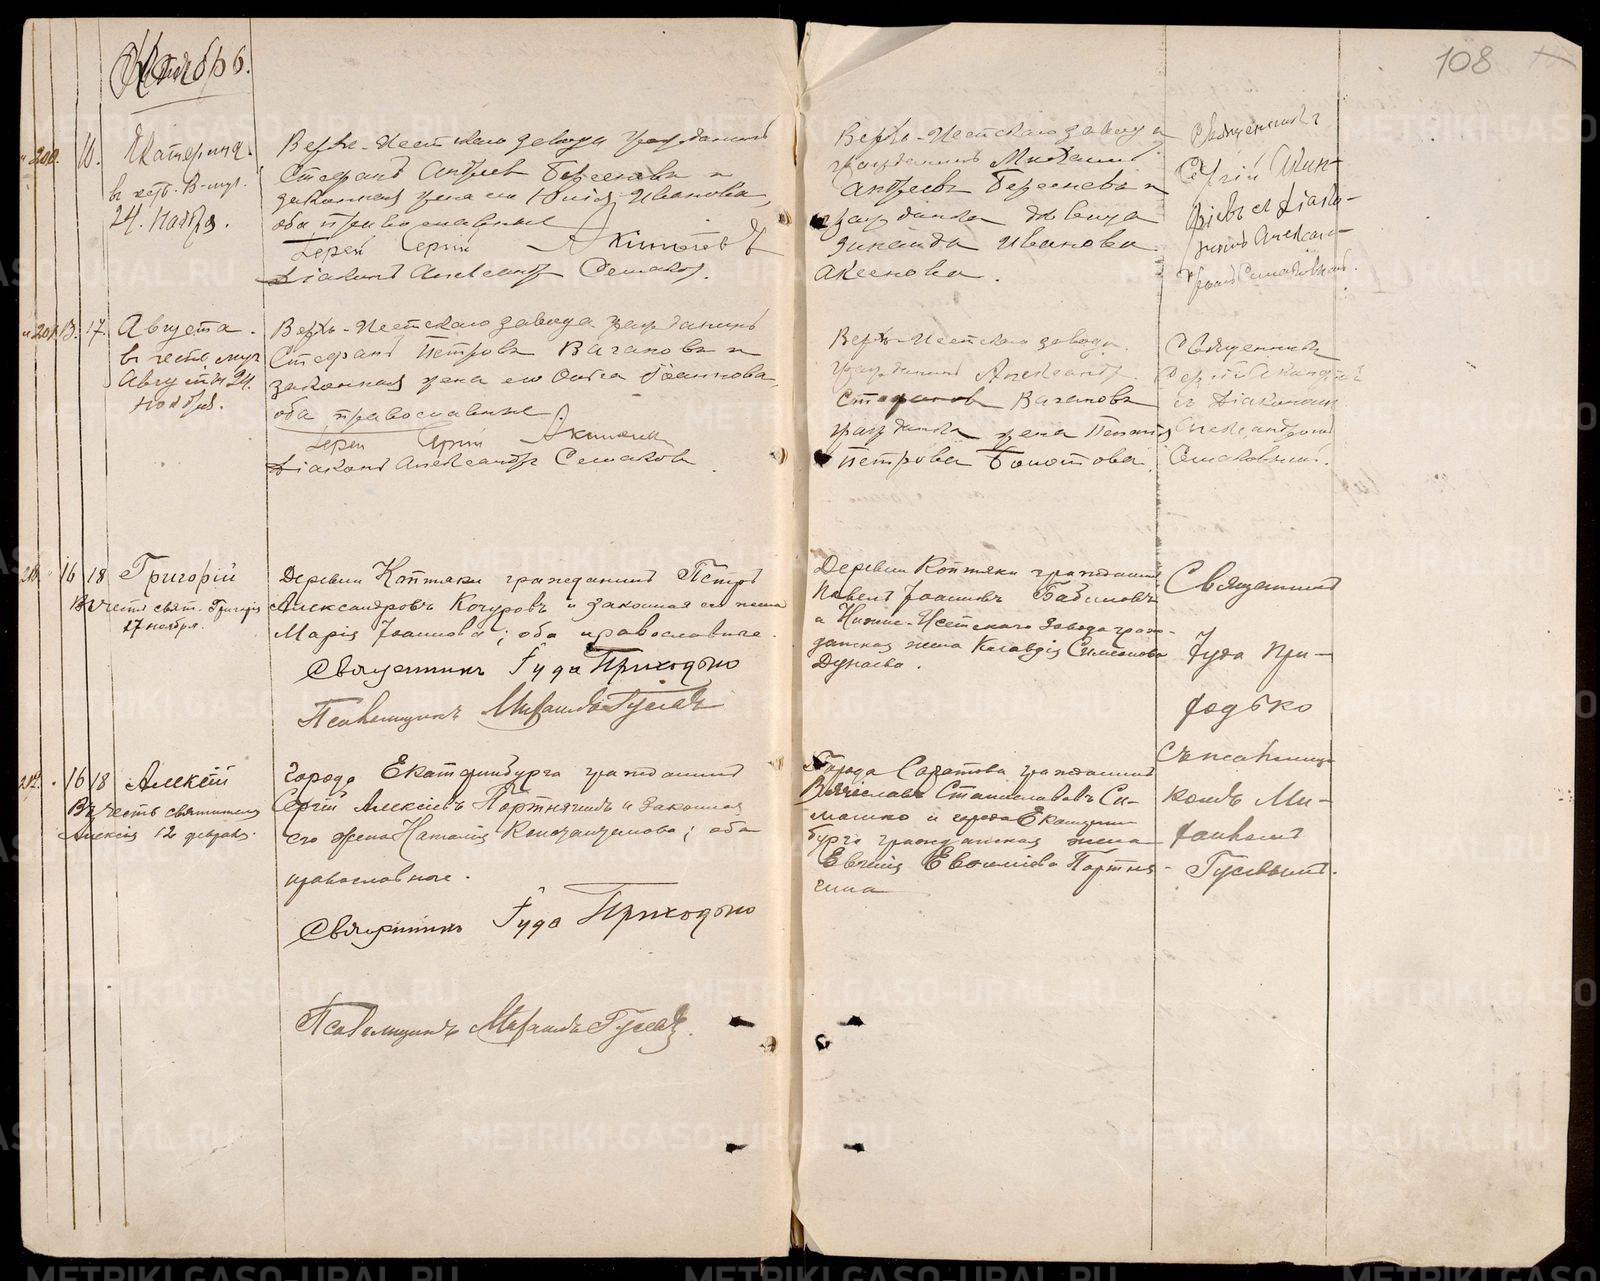 108
Ноябрь.
200. 16. Екатерина.
в честь В-муч.
24. Ноября.
Верхъ-Исетскаго завода гражданинъ
Стефанъ Андреевъ Береснева и
законная жена его Юлія Иванова,
оба православные
Іерей Сергій
Діаконъ Александръ Семаковъ.
Верхъ-Исетскаго завода
гражданинъ Михаилъ
Андреевъ Береснева и
гражданка девица
Зинаида Иванова
Аксенова.
Священникъ
Сергій
съ Діако-
номъ Алексан-
дромъ Семаковымъ.
201. 13. 17. Августа.
в честь муч
Августы 24.
Ноября.
Верхъ-Исетскаго завода гражданинъ
Стефанъ Петровъ Вагановъ и
законная жена его Ольга Іоаннова,
оба православные
Іерей Сергій
Діаконъ Александръ Семаковъ.
Верхъ-Исетскаго завода
гражданинъ Александръ
Стефановъ Вагановъ
гражданка жена
Петрова Болотова.
Священникъ
Сергій
съ Діакономъ
Александромъ
Семаковымъ.
16 18 Григорій
Въ честь свят. Григорія
17 ноября.
Деревни Коптяки гражданинъ Петръ
Александровъ Кочуровъ и законная его жена
Марія Іоаннова; оба православные.
Священникъ Іуда Приходько
Псаломщикъ Михаилъ Гусевъ
Деревни Коптяки гражданинъ
Павелъ Іоанновъ Бабиновъ
и Нижне-Исетскаго Завода граж-
данская жена Клавдія Симеонова
Дунаева.
Священникъ
Іуда При-
ходько
16 18 Алексій
Въ честь святителя
Алексія 12 февраля.
Города Екатеринбурга гражданинъ
Сергій Алексіевъ Портнягинъ и законная
его жена Наталія Константинова; оба
православные.
Священникъ Іуда Приходько
Псаломщикъ Михаилъ Гусевъ.
Города Саратова гражданинъ
Вячеславъ Станиславовъ Си-
машко и города Екатерин-
бурга гражданская жена
Евгенія Евфиміева Портня-
гина
съ псаломщи-
комъ Ми-
хаиломъ
Гусевымъ.
METRIKI.GASO-URAL.RU